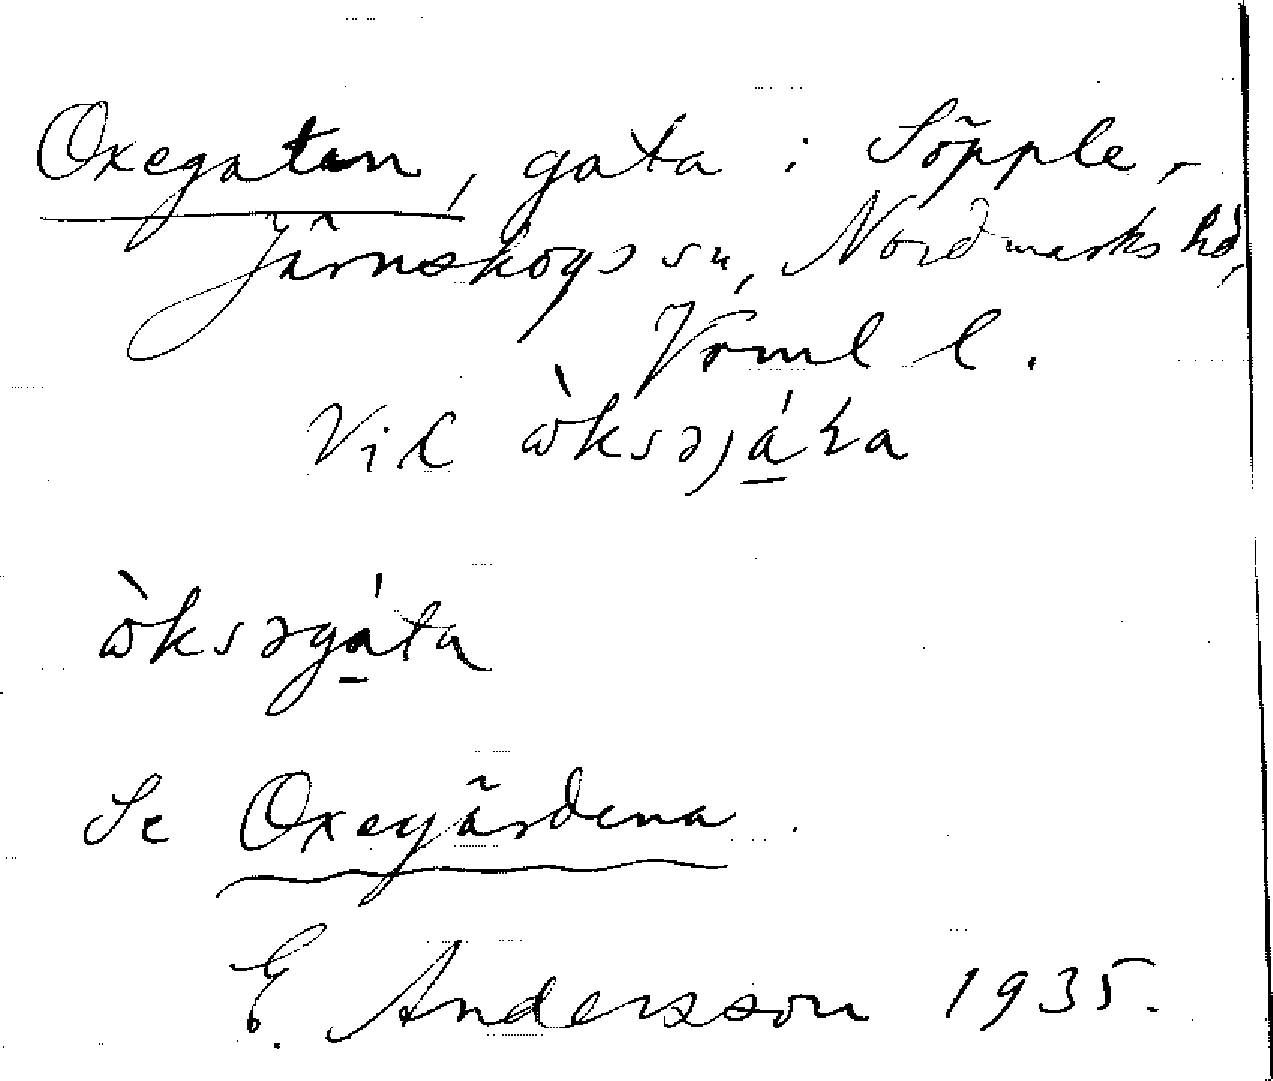 Oxegatan, gata i Söpple,
Järnskogs sn, Nordmarks hd,
Värml l.
Vil
Se Oxegärdena
E. Andersson 1935.